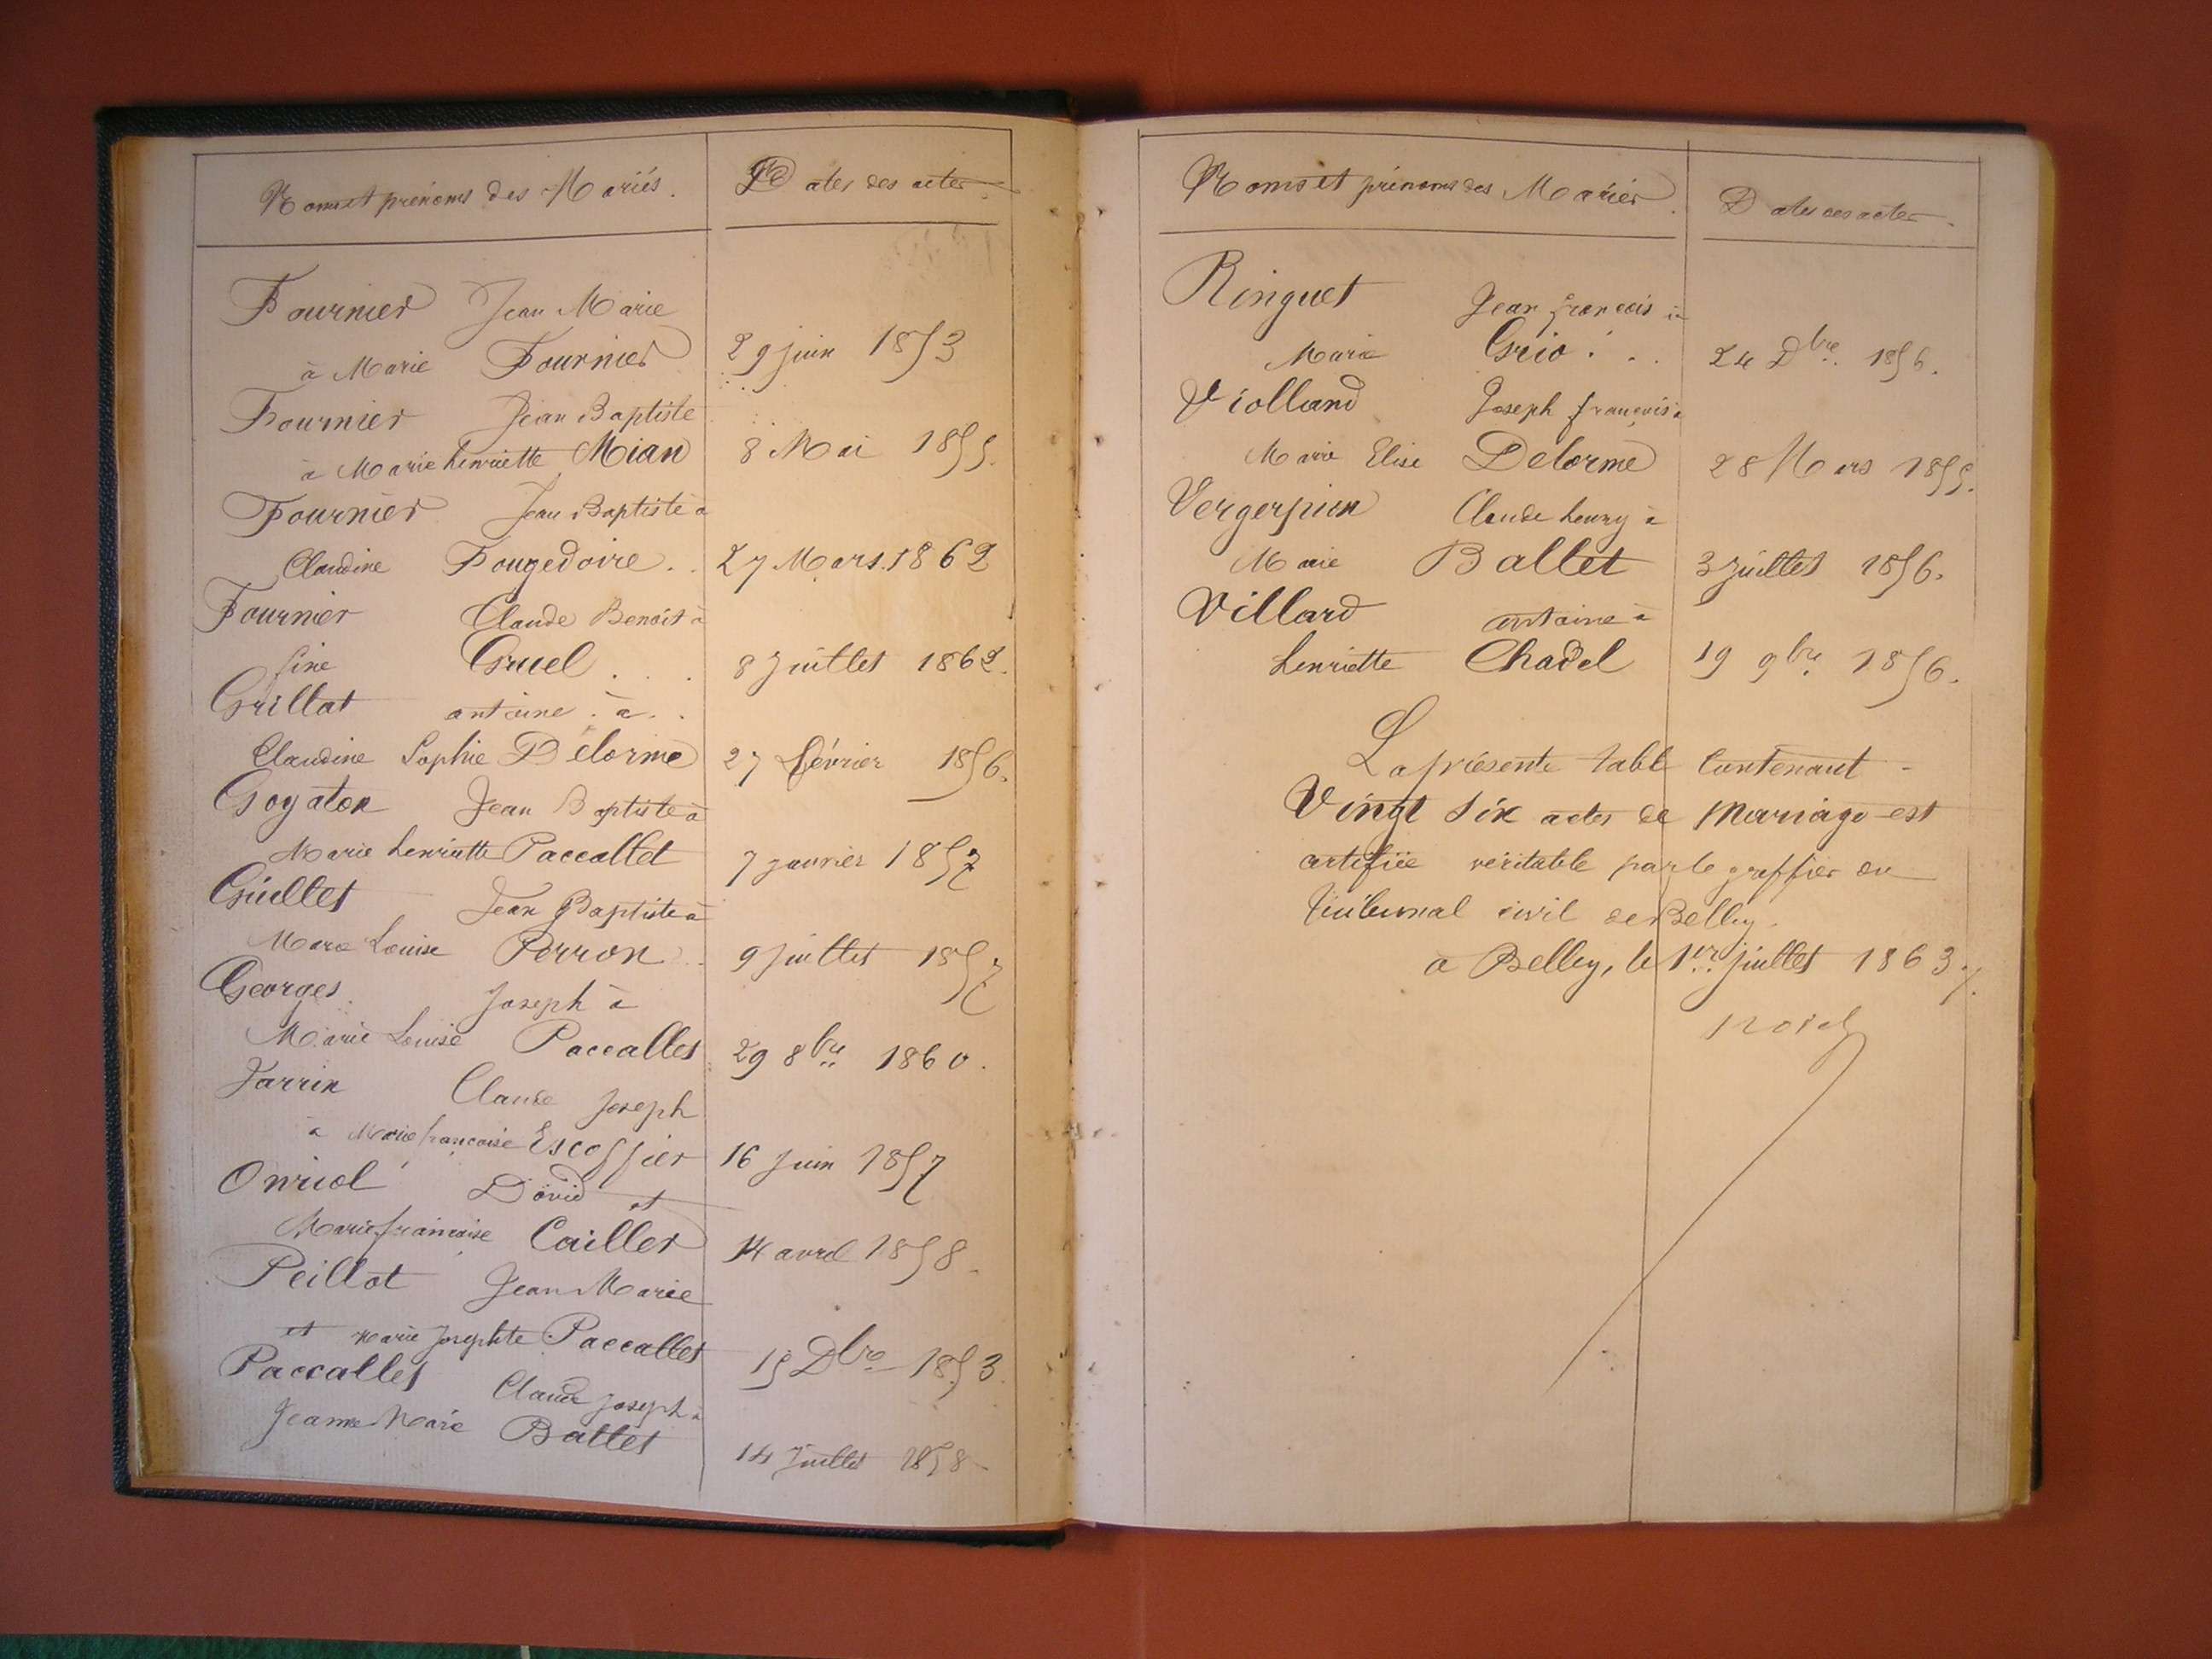 Noms et prénoms des Mariés.
Dates des actes
Fournier Jean Marie
à Marie Fournier 29 juin 1853
Fournier Jean Baptiste
à Marie henriette Mian 8 Mai 1855.
Fournier Jean Baptiste à
Claudine Fougedoire . . 27 Mars 1862
Fournier Claude Benoit à
fine Gruel . . . 8 Juillet 1862.
Grillat antoine . à . .
Claudine Sophie Delorme 27 février 1856.
Goyaton Jean Baptiste à
Marie henriette Paccallet 7 janvier 1857
Guillet Jean Baptiste à
Marie Louise Perron . . 9 juillet 1857
Georges Joseph à
Marie Louise Paccallet 29 8bre 1860.
Jarrin Claude Joseph
à Marie françoise Escoffier 16 Juin 1857
Onriol David et
Marie françoise Cailler 14 avril 1858.
Peillot Jean Marie
et Marie Josephte Paccallet 15 Dbre 1853.
Paccallet Claude Joseph à
Jeanne Marie Ballet 14 Juillet 1858
Noms et prénoms des Mariés.
Dates des actes.
Ringuet Jean françois à
Marie Grio . . . 24 Dbre 1856.
Violland Joseph françois à
Marie Elise Delorme 28 Mars 1855.
Vergerpien Claude henry à
Marie Ballet 3 Juillet 1856.
Villard antoine à
henriette Chadel 19 9bre 1856.
La présente table Contenant
Vingt Six actes de Mariage est
certifiée véritable par le greffier du
tribunal civil de Belley.
à Belley, le 1er juillet 1863.